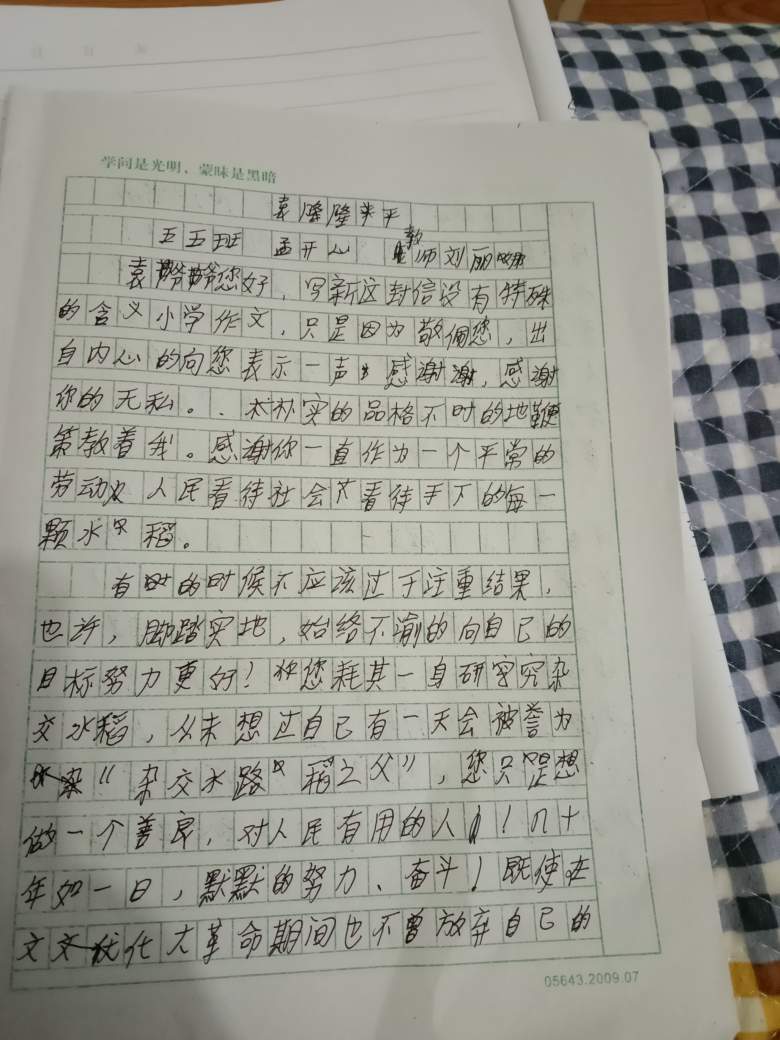 学问是光明，蒙昧是黑暗
袁隆隆平
五五班 孟开心 教师刘丽
袁爷爷您好，写新这封信没有特殊
的含义小学作文，只是因为敬佩您，出
自内心的向您表示一声感谢谢，感谢
你的无私。、朴实的品格不时的地鞭
策教着我。感谢你一直作为一个平常的
劳动人民看待社会看待手下的每一
颗水稻。
有时的时候不应该过于注重结果，
也许，脚踏实地，始终不渝的向自己的
目标努力更好！您耗其一身研究究杂
交水稻，从未想过自己有一天会被誉为
“杂交水路稻之父”，您只是想
做一个善良，对人民有用的人！几十
年如一日，默默的努力、奋斗！既使在
文化大革命期间也不曾放弃自己的
05643.2009.07